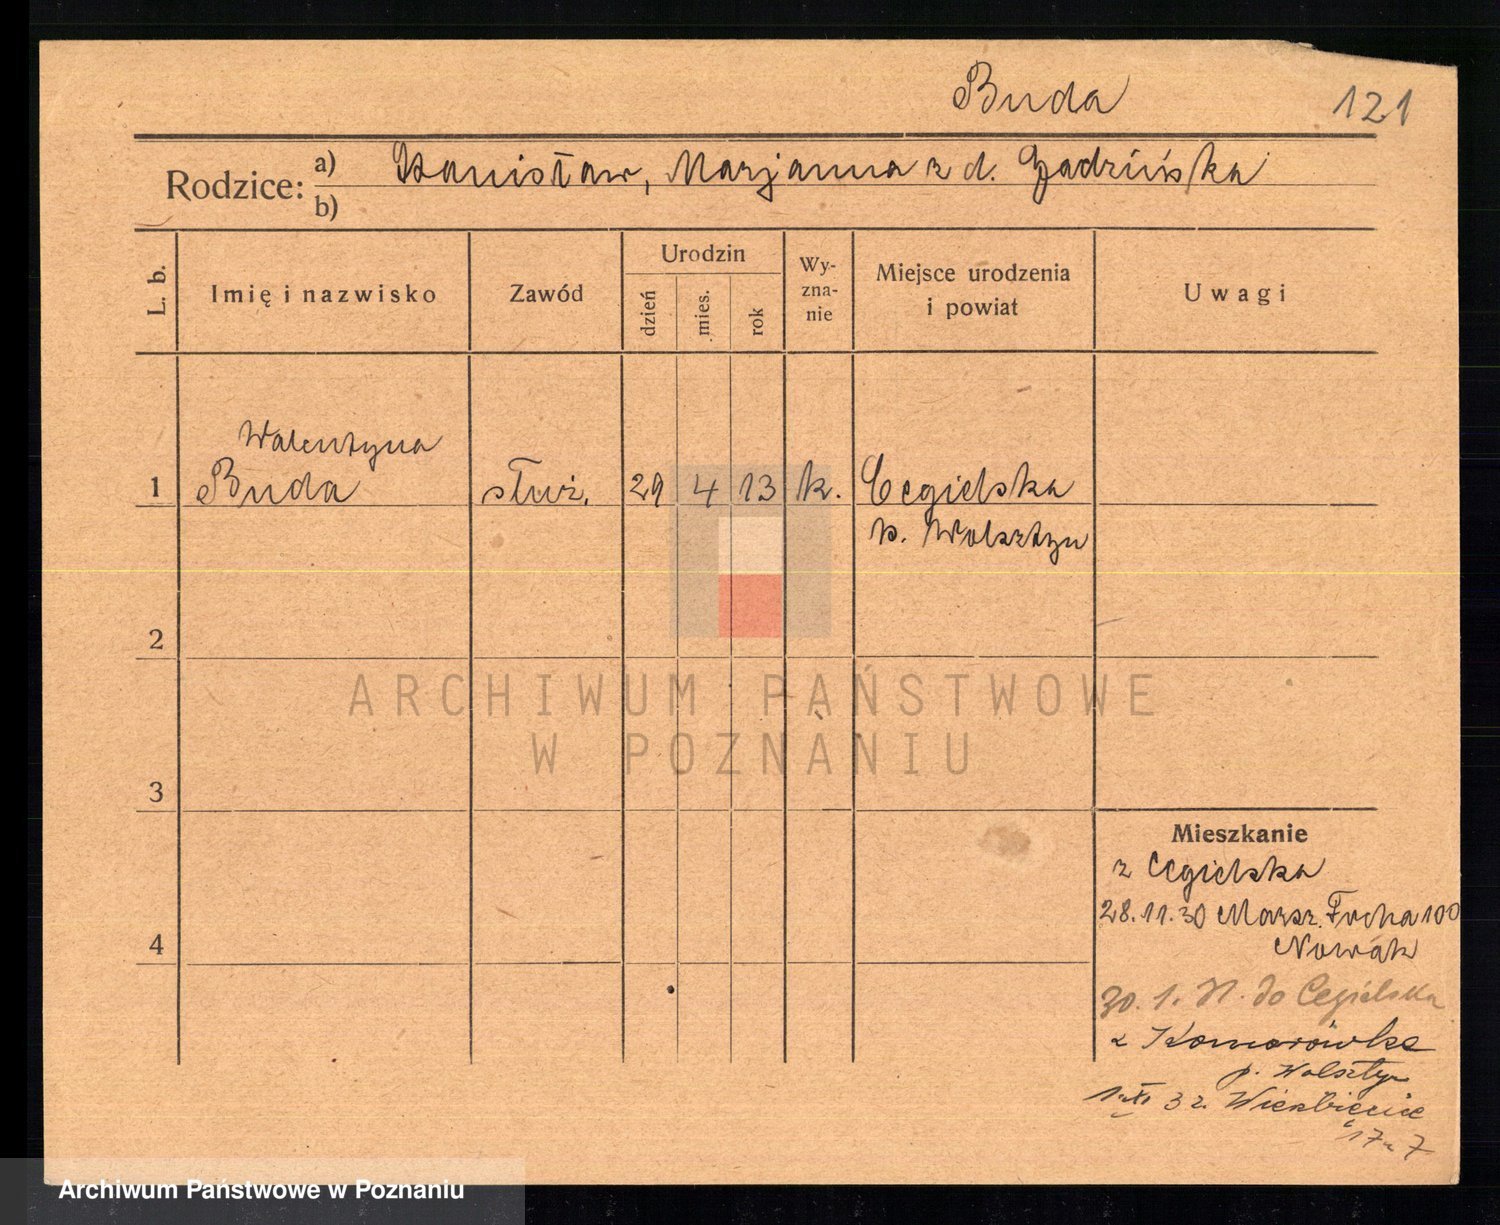 Buda
121
Rodzice: a) Stanisław, Marjanna z d.
b)
L. b.
Imię i nazwisko
Zawód
Urodzin
dzień
mies.
rok
Wy-
zna-
nie
Miejsce urodzenia
i powiat
Uwagi
Walentyna
1 Buda służ. 29 4 13 k. Cegielska
p. Wolsztyn
2
3
4
ARCHIWUM PAŃSTWOWE
W POZNANIU
Mieszkanie
z Cegielska
28.11.30 Marsz. Focha 100
Nowak
30. 1. do Cegielska
z Komorówka
p. Wolsztyn
1. XI 32. Wierzbięcice
17 7
Archiwum Państwowe w Poznaniu